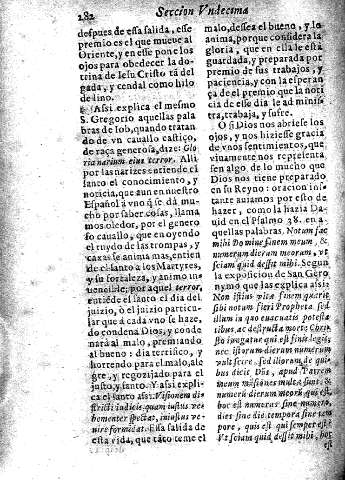 282
Seccion Vndecima
despues de esta salida, esse
premio es el que mueve al
Oriente, y en esse pone los
ojos para obedecer la do-
trina de Iesu Cristo tã del
gada, y cendal como hilo
de lino.
Assi explica el mesmo
S. Gregorio aquellas pala-
bras de Iob, quando tratan
do de vn cauallo castiço,
de raça generosa, dize: Glo
ria narium eius terror. Alli
por las narizes entiende el
santo el conocimiento, y
noticia, que aun en nuestro
Español a vno q̃ se dá mu-
cho por saber cosas, llama
mos oledor, por el genero
so cauallo, que en oyendo
el ruydo de las trompas, y
caxas se anima mas, entien
de el santo a los Martyres,
y su fortaleza, y animo in-
uencible, por aquel terror,
entiẽde el santo el dia del
juizio, ò el juizio particu-
lar que à cada vno se haze,
do condena Dios, y conde
narà al malo, premiando
al bueno: dia terrifico, y
horrendo para el malo, ale
gre, y regozijado para el
justo, y santo. Y assi expli-
ca el santo assi: Visionem di
stricti iudicis, quam iustus ve-
hementer spectat, iniustus ve-
formidat. Essa salida de
esta vida, que tãto teme el
malo, dessea el bueno, y lo
anima, porque considera la
gloria, que en ella le està
guardada, y preparada por
premio de sus trabajos, y
paciencia, y con la esperan
ça de el premio que la noti
cia de esse dia le ad ministra,
trabaja, y sufre.
O si Dios nos abriesse los
ojos, y nos hiziesse gracia
de vnos sentimientos, que
viuamente nos representa
sen algo de lo mucho que
Dios nos tiene preparado
en su Reyno: oracion ins-
tante auiamos por esto de
hazer, como la hazia Da-
uid en el Psalmo 38. en a-
quellas palabras. Notum fac
mihi Domine finem meum, &
numerum dierum meorum, vt
sciam quid desit mihi. Segun
la exposicion de San Gero
nymo que las explica assi:
Non istius vitæ finem quærit
sibi notum fieri Propheta sed
illum in quo euacuatis potesta
tibus, ac destructa morte Chris
to iungatur qui est finis legis;
nec istorum dierum numerum
vult scire, sed illorum, de qui-
bus dicit Dñs, apud Patrem
meum mãsiones multæ sunt: &
numerũ dierum meorũ qui est,
hoc est numerus annorum,
dies sine die tempora sine tem
pore, quis est qui semper est
Vt sciam quid desit mihi, hoc
est